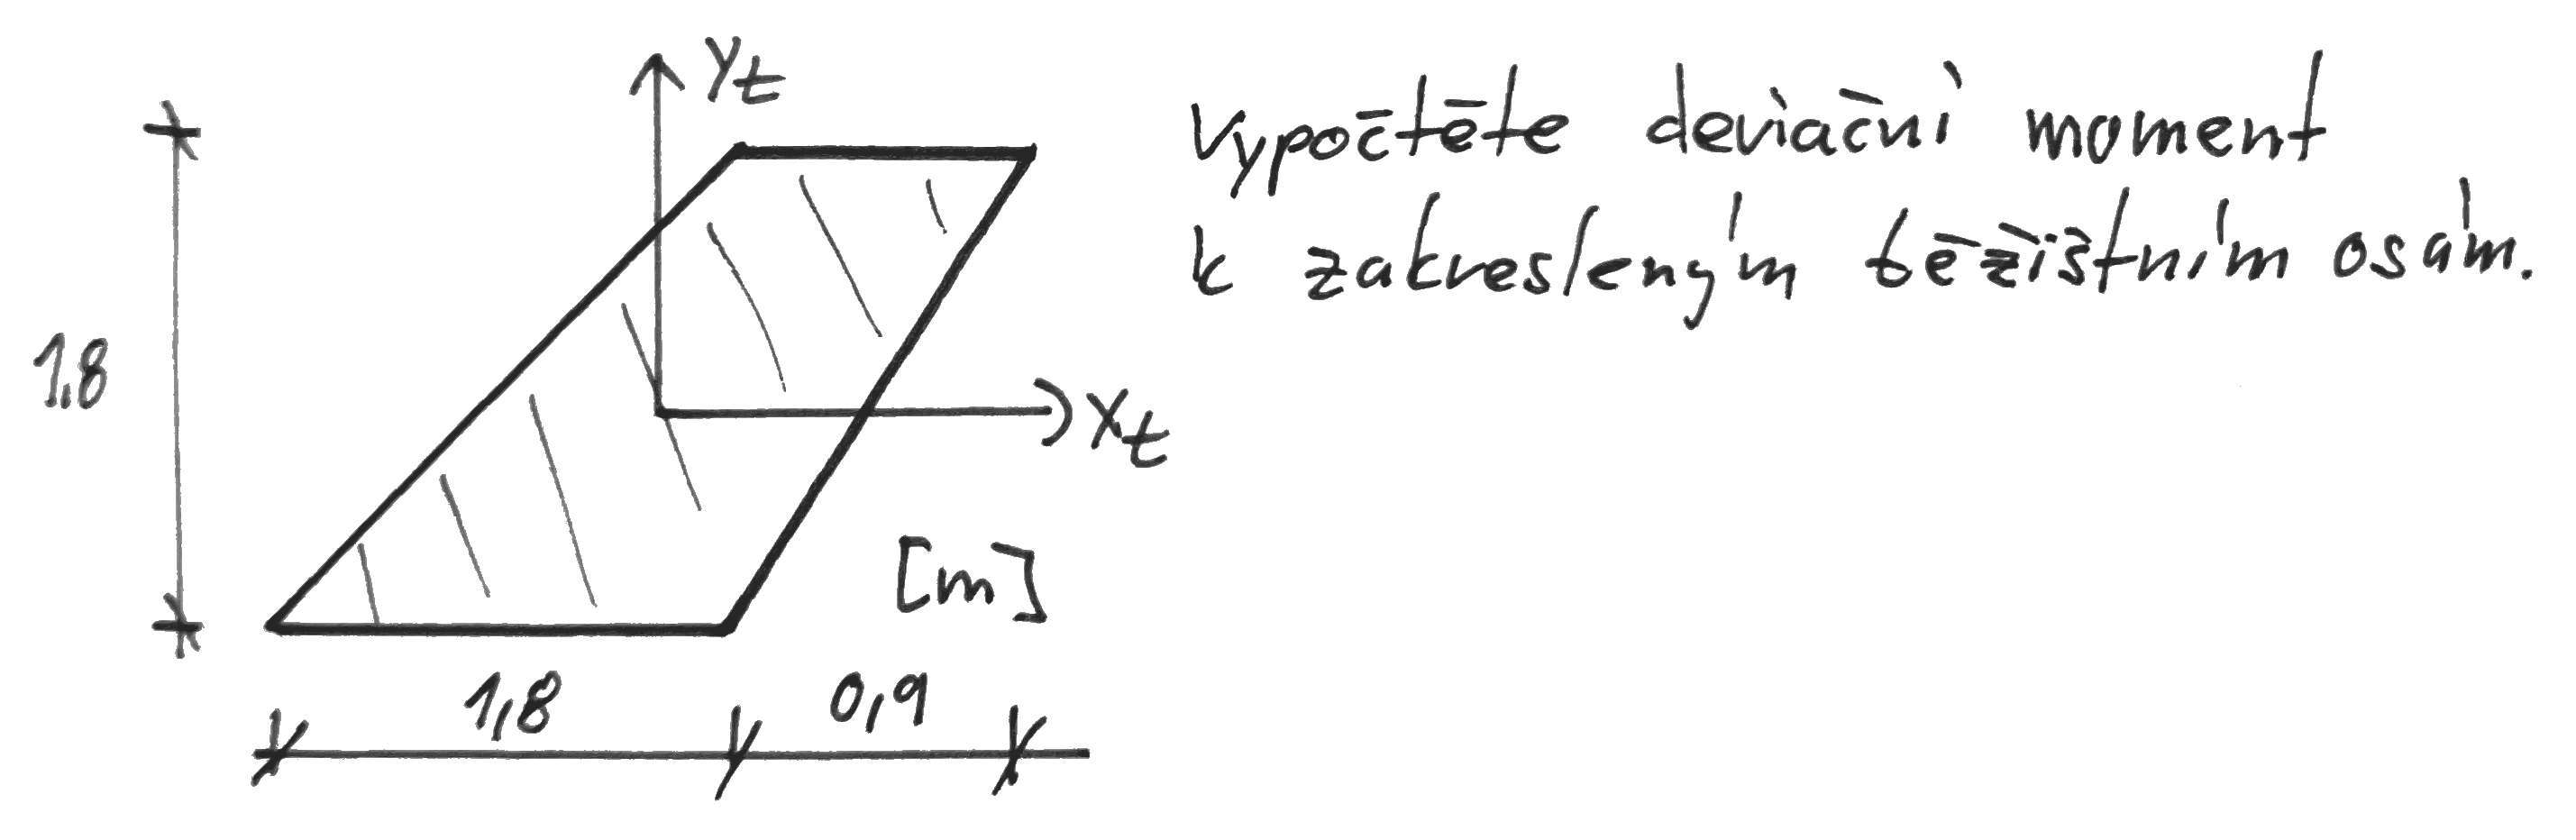 yt
Vypočtěte deviační moment
k zakresleným těžištním osám.
1,8
xt
[m]
1,8
0,9